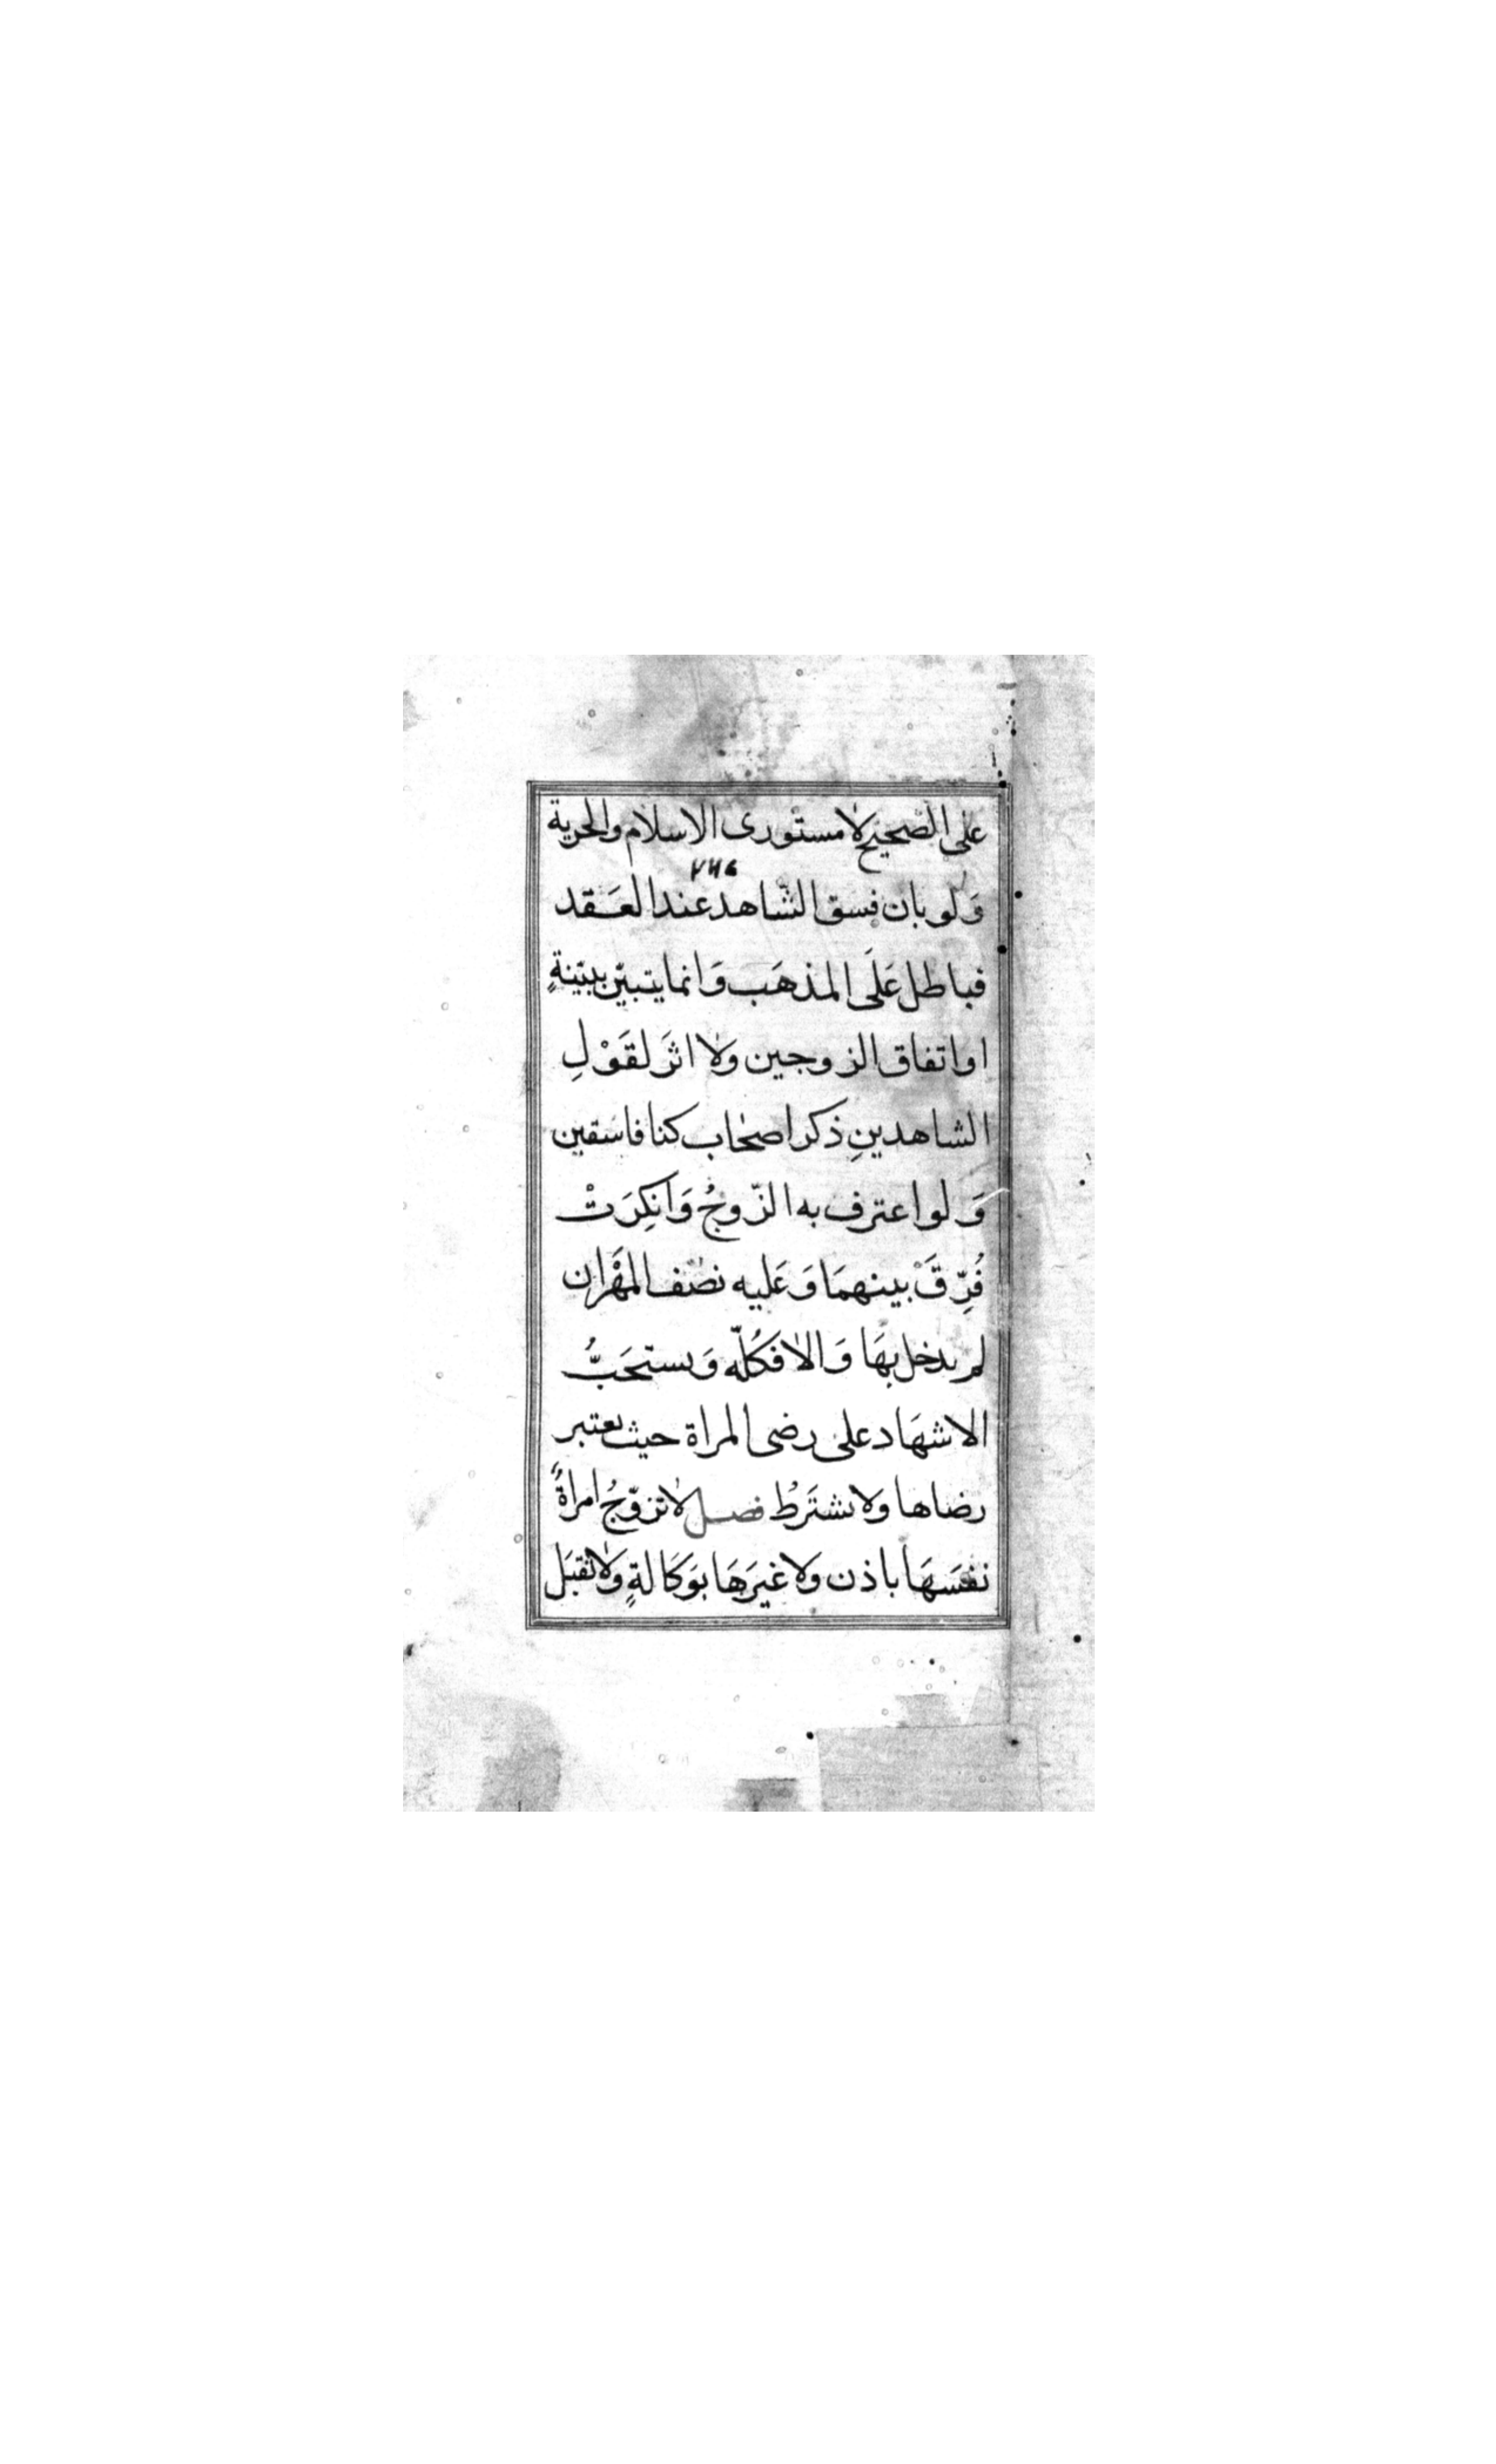 على الصحيح لا مستورى الاسلام والحرية
وَلو بان فسق الشّاهد عند العَقد
فباطل عَلَى المذهَب وَانما يتبيّن ببيّنةٍ
او اتفاق الزوجين ولا اثَر لقَوْلِ
الشاهدينِ ذكر اصحاب كنا فاسقين
وَلو اعترف به الزّوجُ وَانكِرَتْ
فُرِّقَ بينهمَا وَعَليه نصْف المَهْران
لم يدخل بهَا وَالا فكُلّه وَيستحَبُّ
الاشهَاد على رضى المراة حيث يعتبر
رضاها ولا يشتَرطُ فصل لا تزوّجُ امراةٌ
نفسَهَا باذن ولا غيرَهَا بوَكَالةٍ ولا تقبَل